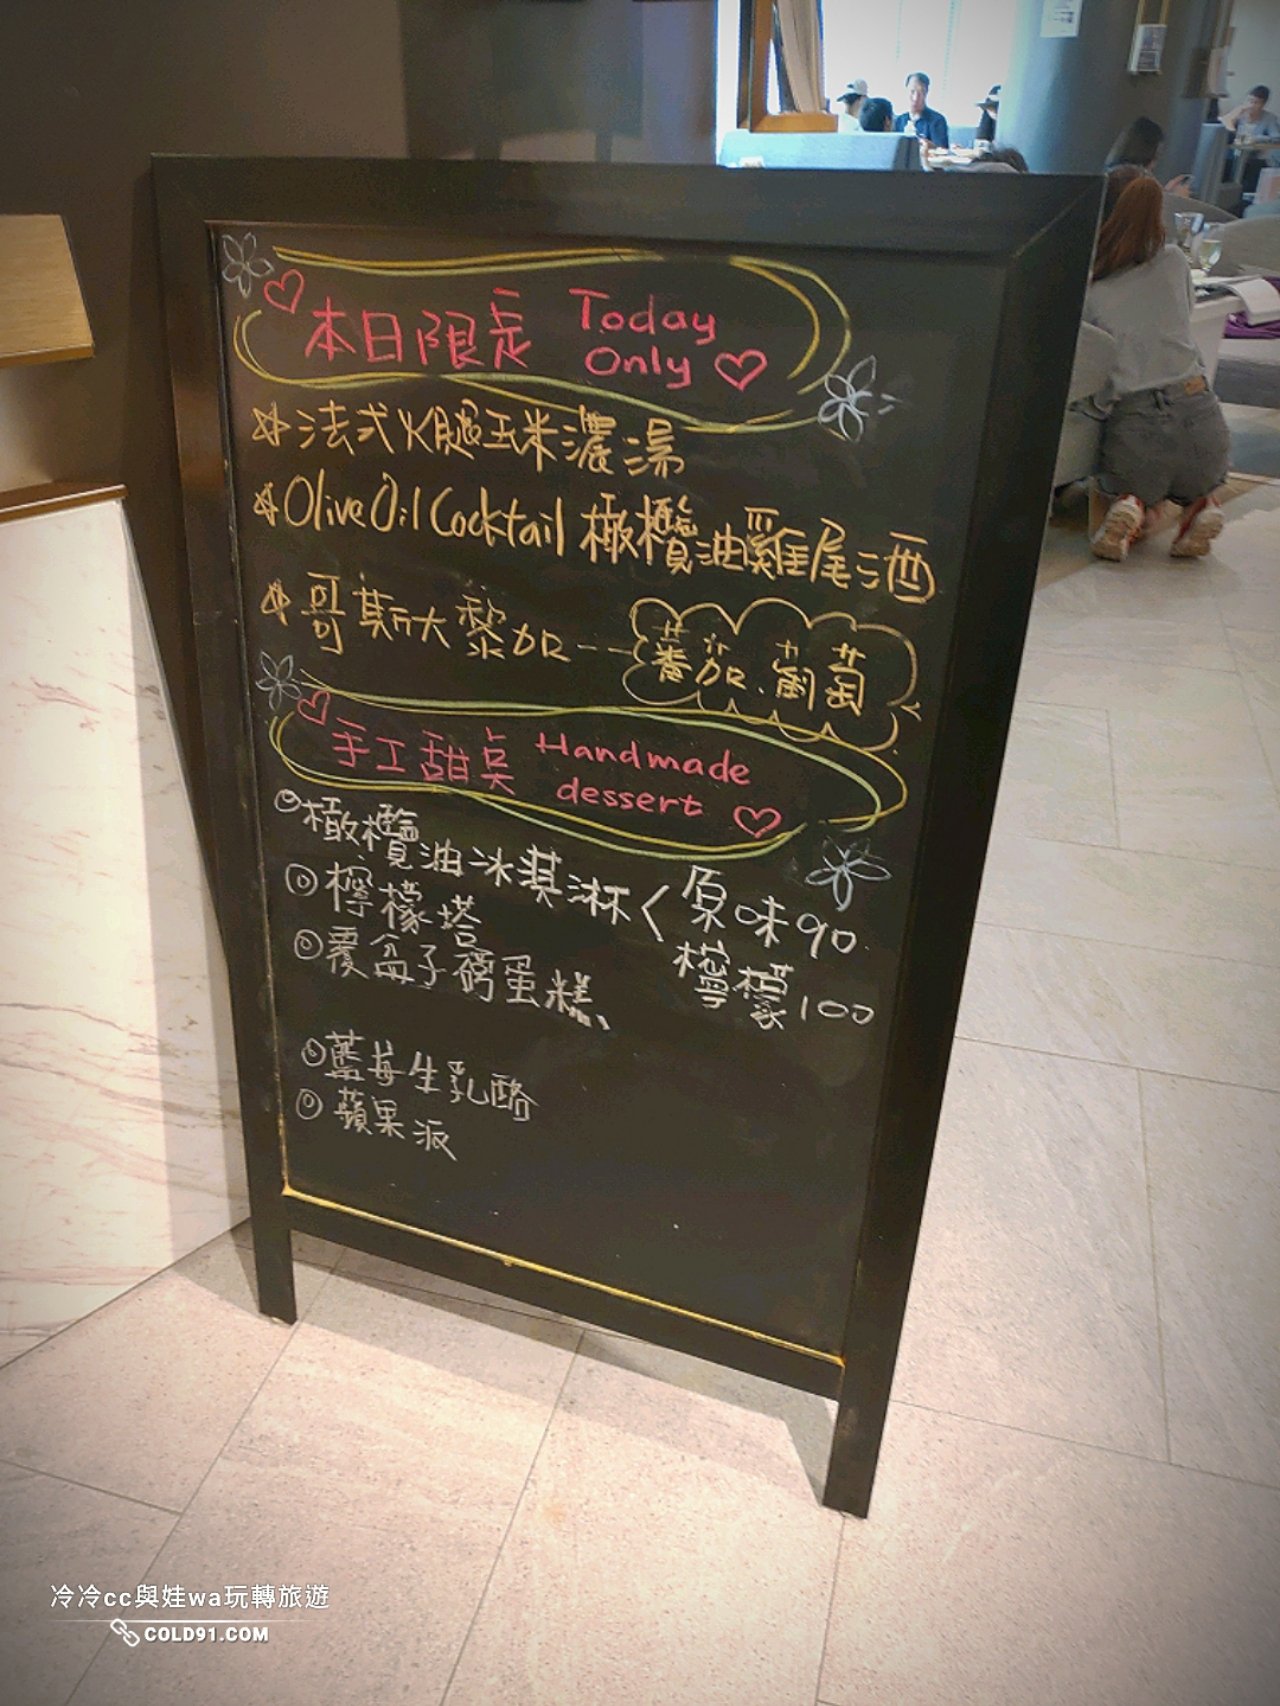 本日限定 Today Only
法式火腿玉米濃湯
Olive Oil Cocktail 橄欖油雞尾酒
哥斯大黎加--蕃茄、葡萄
手工甜點 Handmade dessert
橄欖油冰淇淋<原味90
檸檬100
檸檬塔
覆盆子磅蛋糕
藍莓生乳酪
蘋果派
冷冷cc與娃wa玩轉旅遊
COLD91.COM